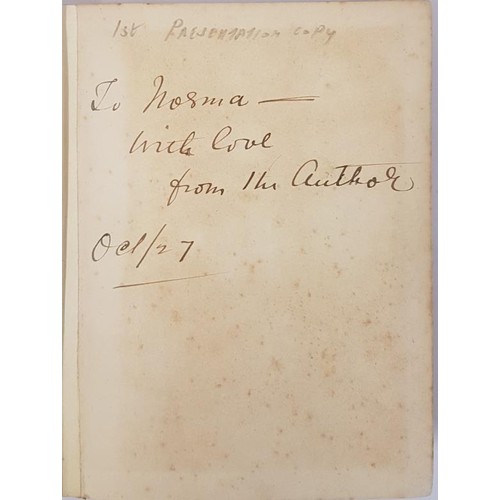 1st Presentation copy
To Norma —
With love
from the Author
Oct/27